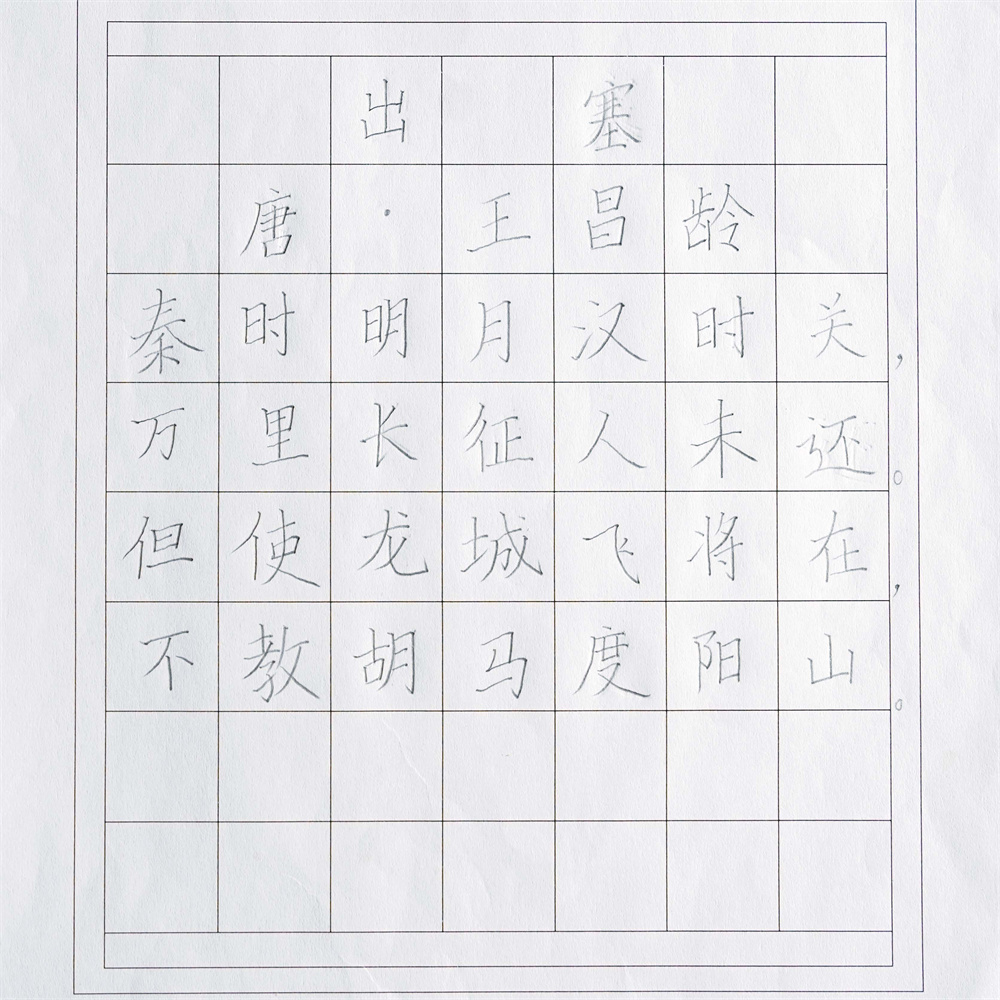 出塞
唐·王昌龄
秦时明月汉时关，
万里长征人未还。
但使龙城飞将在，
不教胡马度阳山。